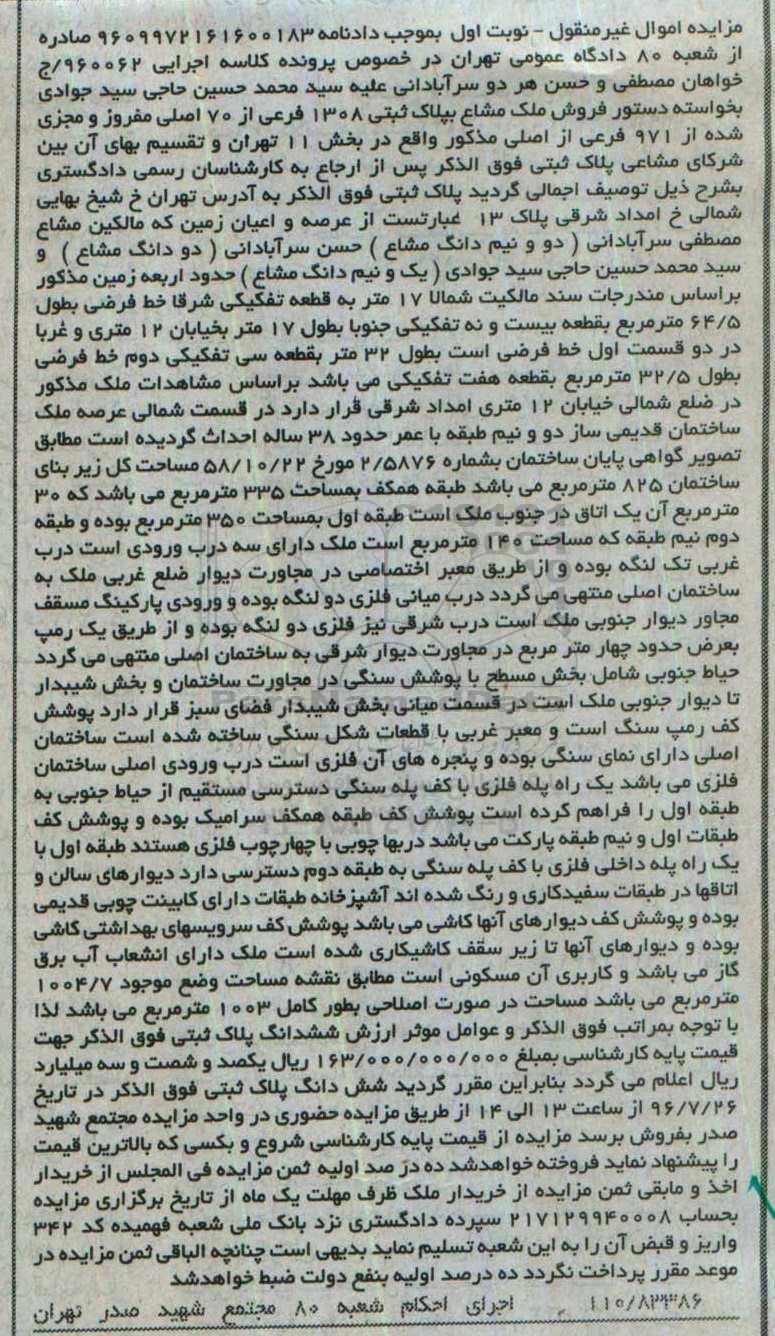 مزایده اموال غیرمنقول - نوبت اول بموجب دادنامه ۹۶۰۹۹۷۲۱۶۱۶۰۰۱۸۳ صادره
از شعبه ۸۰ دادگاه عمومی تهران در خصوص پرونده کلاسه اجرایی ۹۶۰۰۶۲/ج
خواهان مصطفی و حسن هر دو سرآبادانی علیه سید محمد حسین حاجی سید جوادی
بخواسته دستور فروش ملک مشاع بپلاک ثبتی ۱۳۰۸ فرعی از ۷۰ اصلی مفروز و مجزی
شده از ۹۷۱ فرعی از اصلی مذکور واقع در بخش ۱۱ تهران و تقسیم بهای آن بین
شرکای مشاعی پلاک ثبتی فوق الذکر پس از ارجاع به کارشناسان رسمی دادگستری
بشرح ذیل توصیف اجمالی گردید پلاک ثبتی فوق الذکر به آدرس تهران خ شیخ بهایی
شمالی خ امداد شرقی پلاک ۱۳ عبارتست از عرصه و اعیان زمین که مالکین مشاع
مصطفی سرآبادانی ( دو و نیم دانگ مشاع ) حسن سرآبادانی ( دو دانگ مشاع ) و
سید محمد حسین حاجی سید جوادی ( یک و نیم دانگ مشاع ) حدود اربعه زمین مذکور
براساس مندرجات سند مالکیت شمالا ۱۷ متر به قطعه تفکیکی شرقا خط فرضی بطول
۶۴/۵ مترمربع بقطعه بیست و نه تفکیکی جنوبا بطول ۱۷ متر بخیابان ۱۲ متری و غربا
در دو قسمت اول خط فرضی است بطول ۳۲ متر بقطعه سی تفکیکی دوم خط فرضی
بطول ۳۲/۵ مترمربع بقطعه هفت تفکیکی می باشد براساس مشاهدات ملک مذکور
در ضلع شمالی خیابان ۱۲ متری امداد شرقی قرار دارد در قسمت شمالی عرصه ملک
ساختمان قدیمی ساز دو و نیم طبقه با عمر حدود ۳۸ ساله احداث گردیده است مطابق
تصویر گواهی پایان ساختمان بشماره ۲/۵۸۷۶ مورخ ۵۸/۱۰/۲۲ مساحت کل زیر بنای
ساختمان ۸۲۵ مترمربع می باشد طبقه همکف بمساحت ۳۳۵ مترمربع می باشد که ۳۰
مترمربع آن یک اتاق در جنوب ملک است طبقه اول بمساحت ۳۵۰ مترمربع بوده و طبقه
دوم نیم طبقه که مساحت ۱۴۰ مترمربع است ملک دارای سه درب ورودی است درب
غربی تک لنگه بوده و از طریق معبر اختصاصی در مجاورت دیوار ضلع غربی ملک به
ساختمان اصلی منتهی می گردد درب میانی فلزی دو لنگه بوده و ورودی پارکینگ مسقف
مجاور دیوار جنوبی ملک است درب شرقی نیز فلزی دو لنگه بوده و از طریق یک رمپ
بعرض حدود چهار متر مربع در مجاورت دیوار شرقی به ساختمان اصلی منتهی می گردد
حیاط جنوبی شامل بخش مسطح با پوشش سنگی در مجاورت ساختمان و بخش شیبدار
تا دیوار جنوبی ملک است در قسمت میانی بخش شیبدار فضای سبز قرار دارد پوشش
کف رمپ سنگ است و معبر غربی با قطعات شکل سنگی ساخته شده است ساختمان
اصلی دارای نمای سنگی بوده و پنجره های آن فلزی است درب ورودی اصلی ساختمان
فلزی می باشد یک راه پله فلزی با کف پله سنگی دسترسی مستقیم از حیاط جنوبی به
طبقه اول را فراهم کرده است پوشش کف طبقه همکف سرامیک بوده و پوشش کف
طبقات اول و نیم طبقه پارکت می باشد دربها چوبی با چهارچوب فلزی هستند طبقه اول با
یک راه پله داخلی فلزی با کف پله سنگی به طبقه دوم دسترسی دارد دیوارهای سالن و
اتاقها در طبقات سفیدکاری و رنگ شده اند آشپزخانه طبقات دارای کابینت چوبی قدیمی
بوده و پوشش کف دیوارهای آنها کاشی می باشد پوشش کف سرویسهای بهداشتی کاشی
بوده و دیوارهای آنها تا زیر سقف کاشیکاری شده است ملک دارای انشعاب آب برق
گاز می باشد و کاربری آن مسکونی است مطابق نقشه مساحت وضع موجود ۱۰۰۴/۷
مترمربع می باشد مساحت در صورت اصلاحی بطور کامل ۱۰۰۳ مترمربع می باشد لذا
با توجه بمراتب فوق الذکر و عوامل موثر ارزش ششدانگ پلاک ثبتی فوق الذکر جهت
قیمت پایه کارشناسی بمبلغ ۱۶۳/۰۰۰/۰۰۰/۰۰۰ ریال یکصد و شصت و سه میلیارد
ریال اعلام می گردد بنابراین مقرر گردید شش دانگ پلاک ثبتی فوق الذکر در تاریخ
۹۶/۷/۲۶ از ساعت ۱۳ الی ۱۴ از طریق مزایده حضوری در واحد مزایده مجتمع شهید
صدر بفروش برسد مزایده از قیمت پایه کارشناسی شروع و بکسی که بالاترین قیمت
را پیشنهاد نماید فروخته خواهدشد ده در صد اولیه ثمن مزایده فی المجلس از خریدار
اخذ و مابقی ثمن مزایده از خریدار ملک ظرف مهلت یک ماه از تاریخ برگزاری مزایده
بحساب ۲۱۷۱۲۹۹۴۰۰۰۸ سپرده دادگستری نزد بانک ملی شعبه فهمیده کد ۳۴۲
واریز و قبض آن را به این شعبه تسلیم نماید بدیهی است چنانچه الباقی ثمن مزایده در
موعد مقرر پرداخت نگردد ده درصد اولیه بنفع دولت ضبط خواهدشد
۱۱۰/۸۲۳۸۶ اجرای احکام شعبه ۸۰ مجتمع شهید صدر تهران